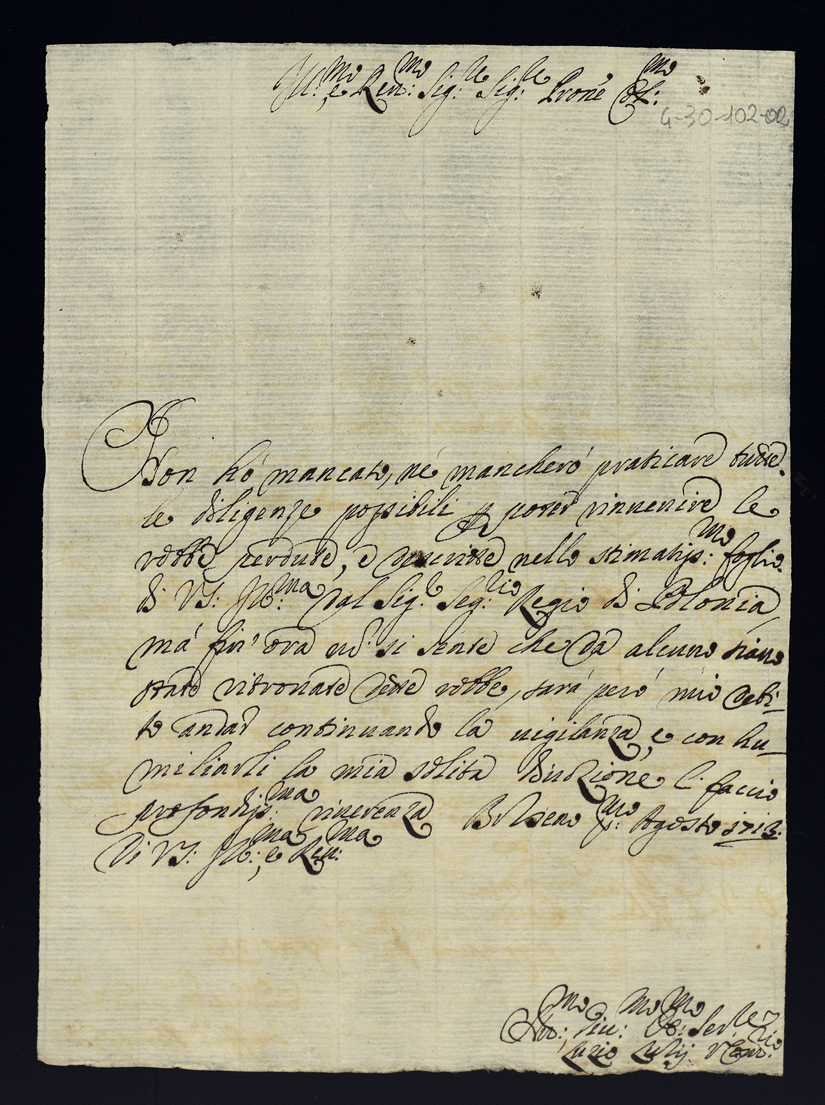 Ill:mo e Reu:mo Sig:re Sig:re Prone Col:mo
4-30-102-02
Non hò mancato, nè mancherò praticare tutte
le diligenze possibili p poter rinuenire le
robbe perdute, e descritte nello stimatiss:mo foglio
di VS: Ill:ma dal Sig:r Seg:rio Regio di Polonia
mà fin' ora non si sente che da alcuno siano
state ritrouate dette robbe, sarà però mio debi-
to andar continuando la uigilanza, e con hu-
miliarli la mia solita diuozione li faccio
profondiss:ma riuerenza Bolseno p:mo Agosto 1713.
Di VS: Ill:ma e Reu:ma
Diu:mo Ob:mo Ser:re